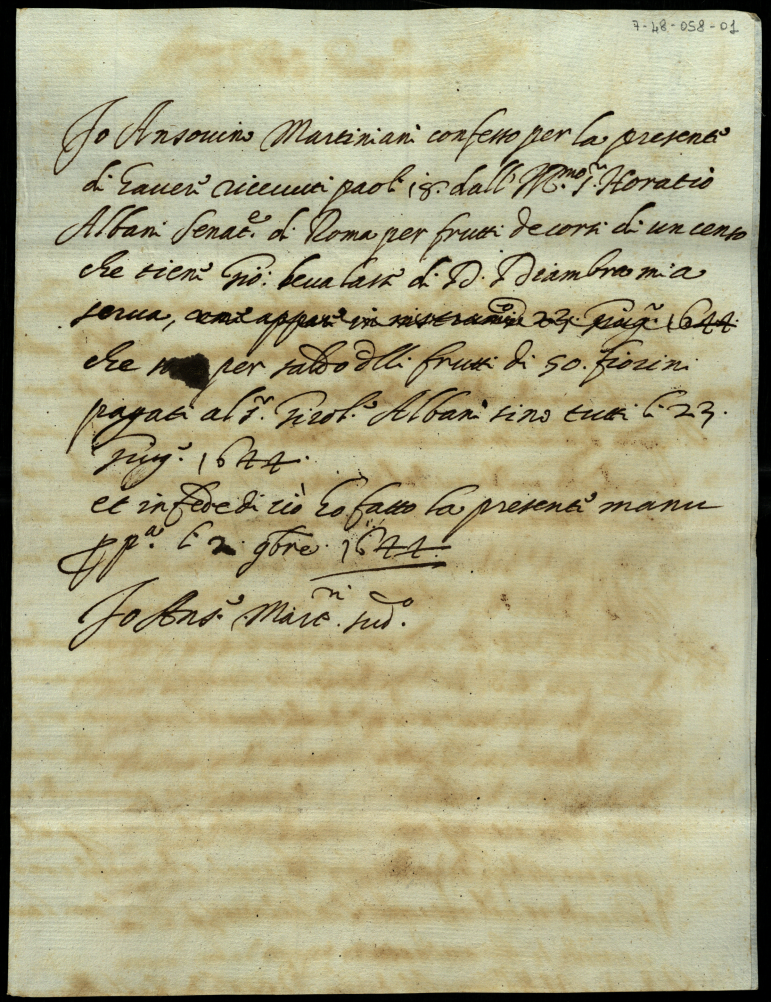 7-48-058-01
Io Ansovino Martiniani confesso per la presente
di haver ricevuti paoli 18. dall' Ill.mo S.r Horatio
Albani Senat.e di Roma per frutti decorsi di un censo
che tiene Gio: di D. Diambra mia
serva, come appare in 23. Giug.o 1644
che per saldo dlli frutti di 50. fiorini
pagati al S.r Girol.o Albani sino tutti li 23.
Giug.o 1644.
et in fede di ciò ho fatto la presente manu
pp.a li 2. 9bre. 1644.
Io Ans.o Mart.ni sud.o